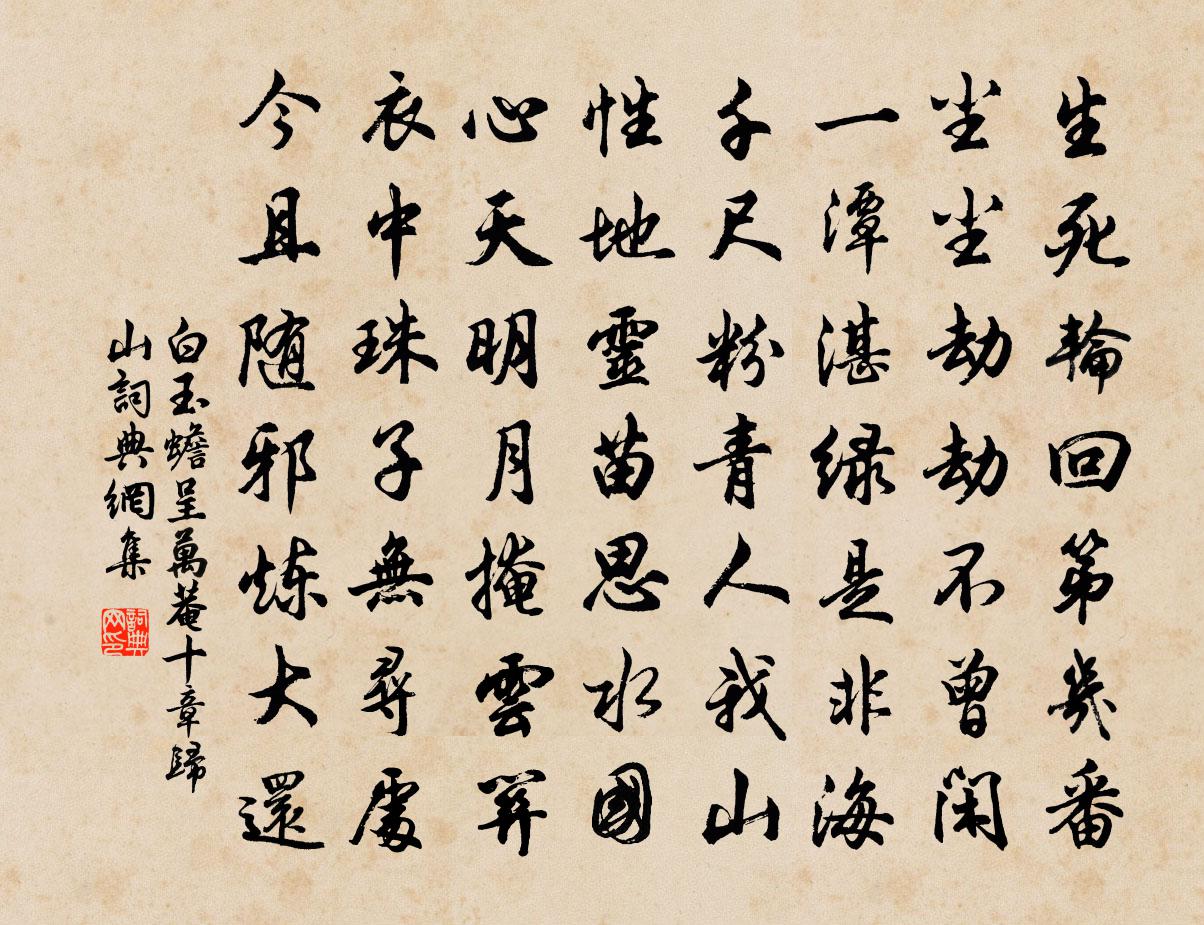 生死輪回第幾番
尘尘劫劫不曾閑
一潭湛緑是非海
千尺粉青人我山
性地靈苗思水國
心天明月掩雲關
衣中珠子無尋處
今且随邪炼大還
白玉蟾呈萬菴十章歸
山詞典網集
詞典网印